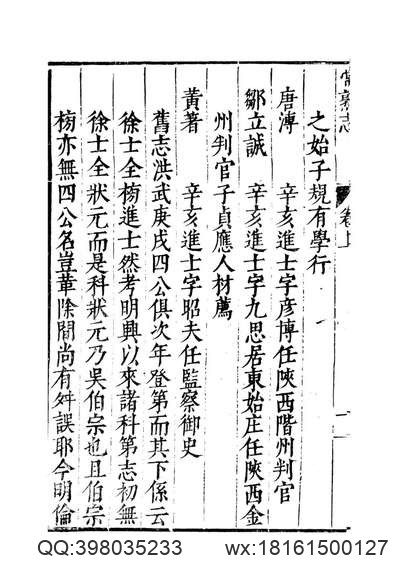 常熟志 卷上
之始子規有學行
唐溥 辛亥進士字彥博任陝西階州判官
鄒立誠 辛亥進士字九思居東始庄任陝西金
州判官子貞應人材薦
黃著 辛亥進士字昭夫任監察御史
舊志洪武庚戌四公俱次年登第而其下係云
徐士全榜進士然考明興以來諸科第志初無
徐士全狀元而是科狀元乃吳伯宗也且伯宗
榜亦無四公名豈革除間尚有舛誤耶今明倫
QQ:398035233 wx:18161500127